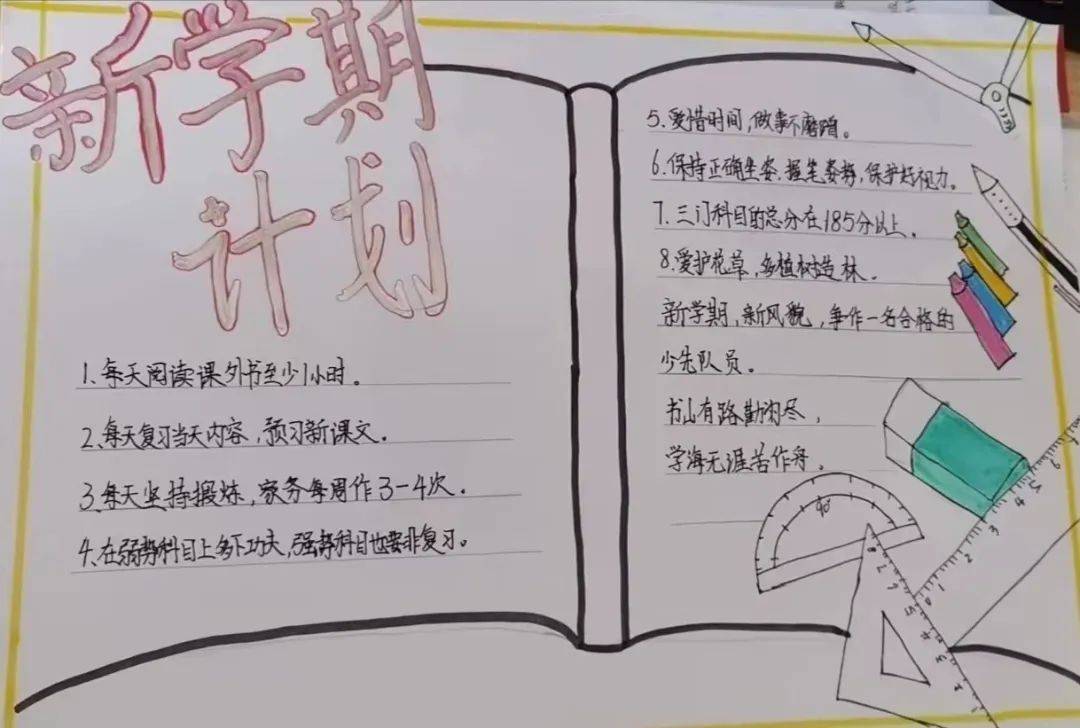 新学期
计划
1、每天阅读课外书至少1小时。
2、每天复习当天内容，预习新课文。
3、每天坚持锻炼，家务每周作3-4次。
4、在弱势科目上多下功夫，强势科目也要非复习。
5、爱惜时间，做事不磨蹭。
6、保持正确坐姿、握笔姿势，保护好视力。
7、三门科目的总分在185分以上。
8、爱护花草，多植树造林。
新学期，新风貌，争作一名合格的
少先队员。
书山有路勤为尽，
学海无涯苦作舟。
90